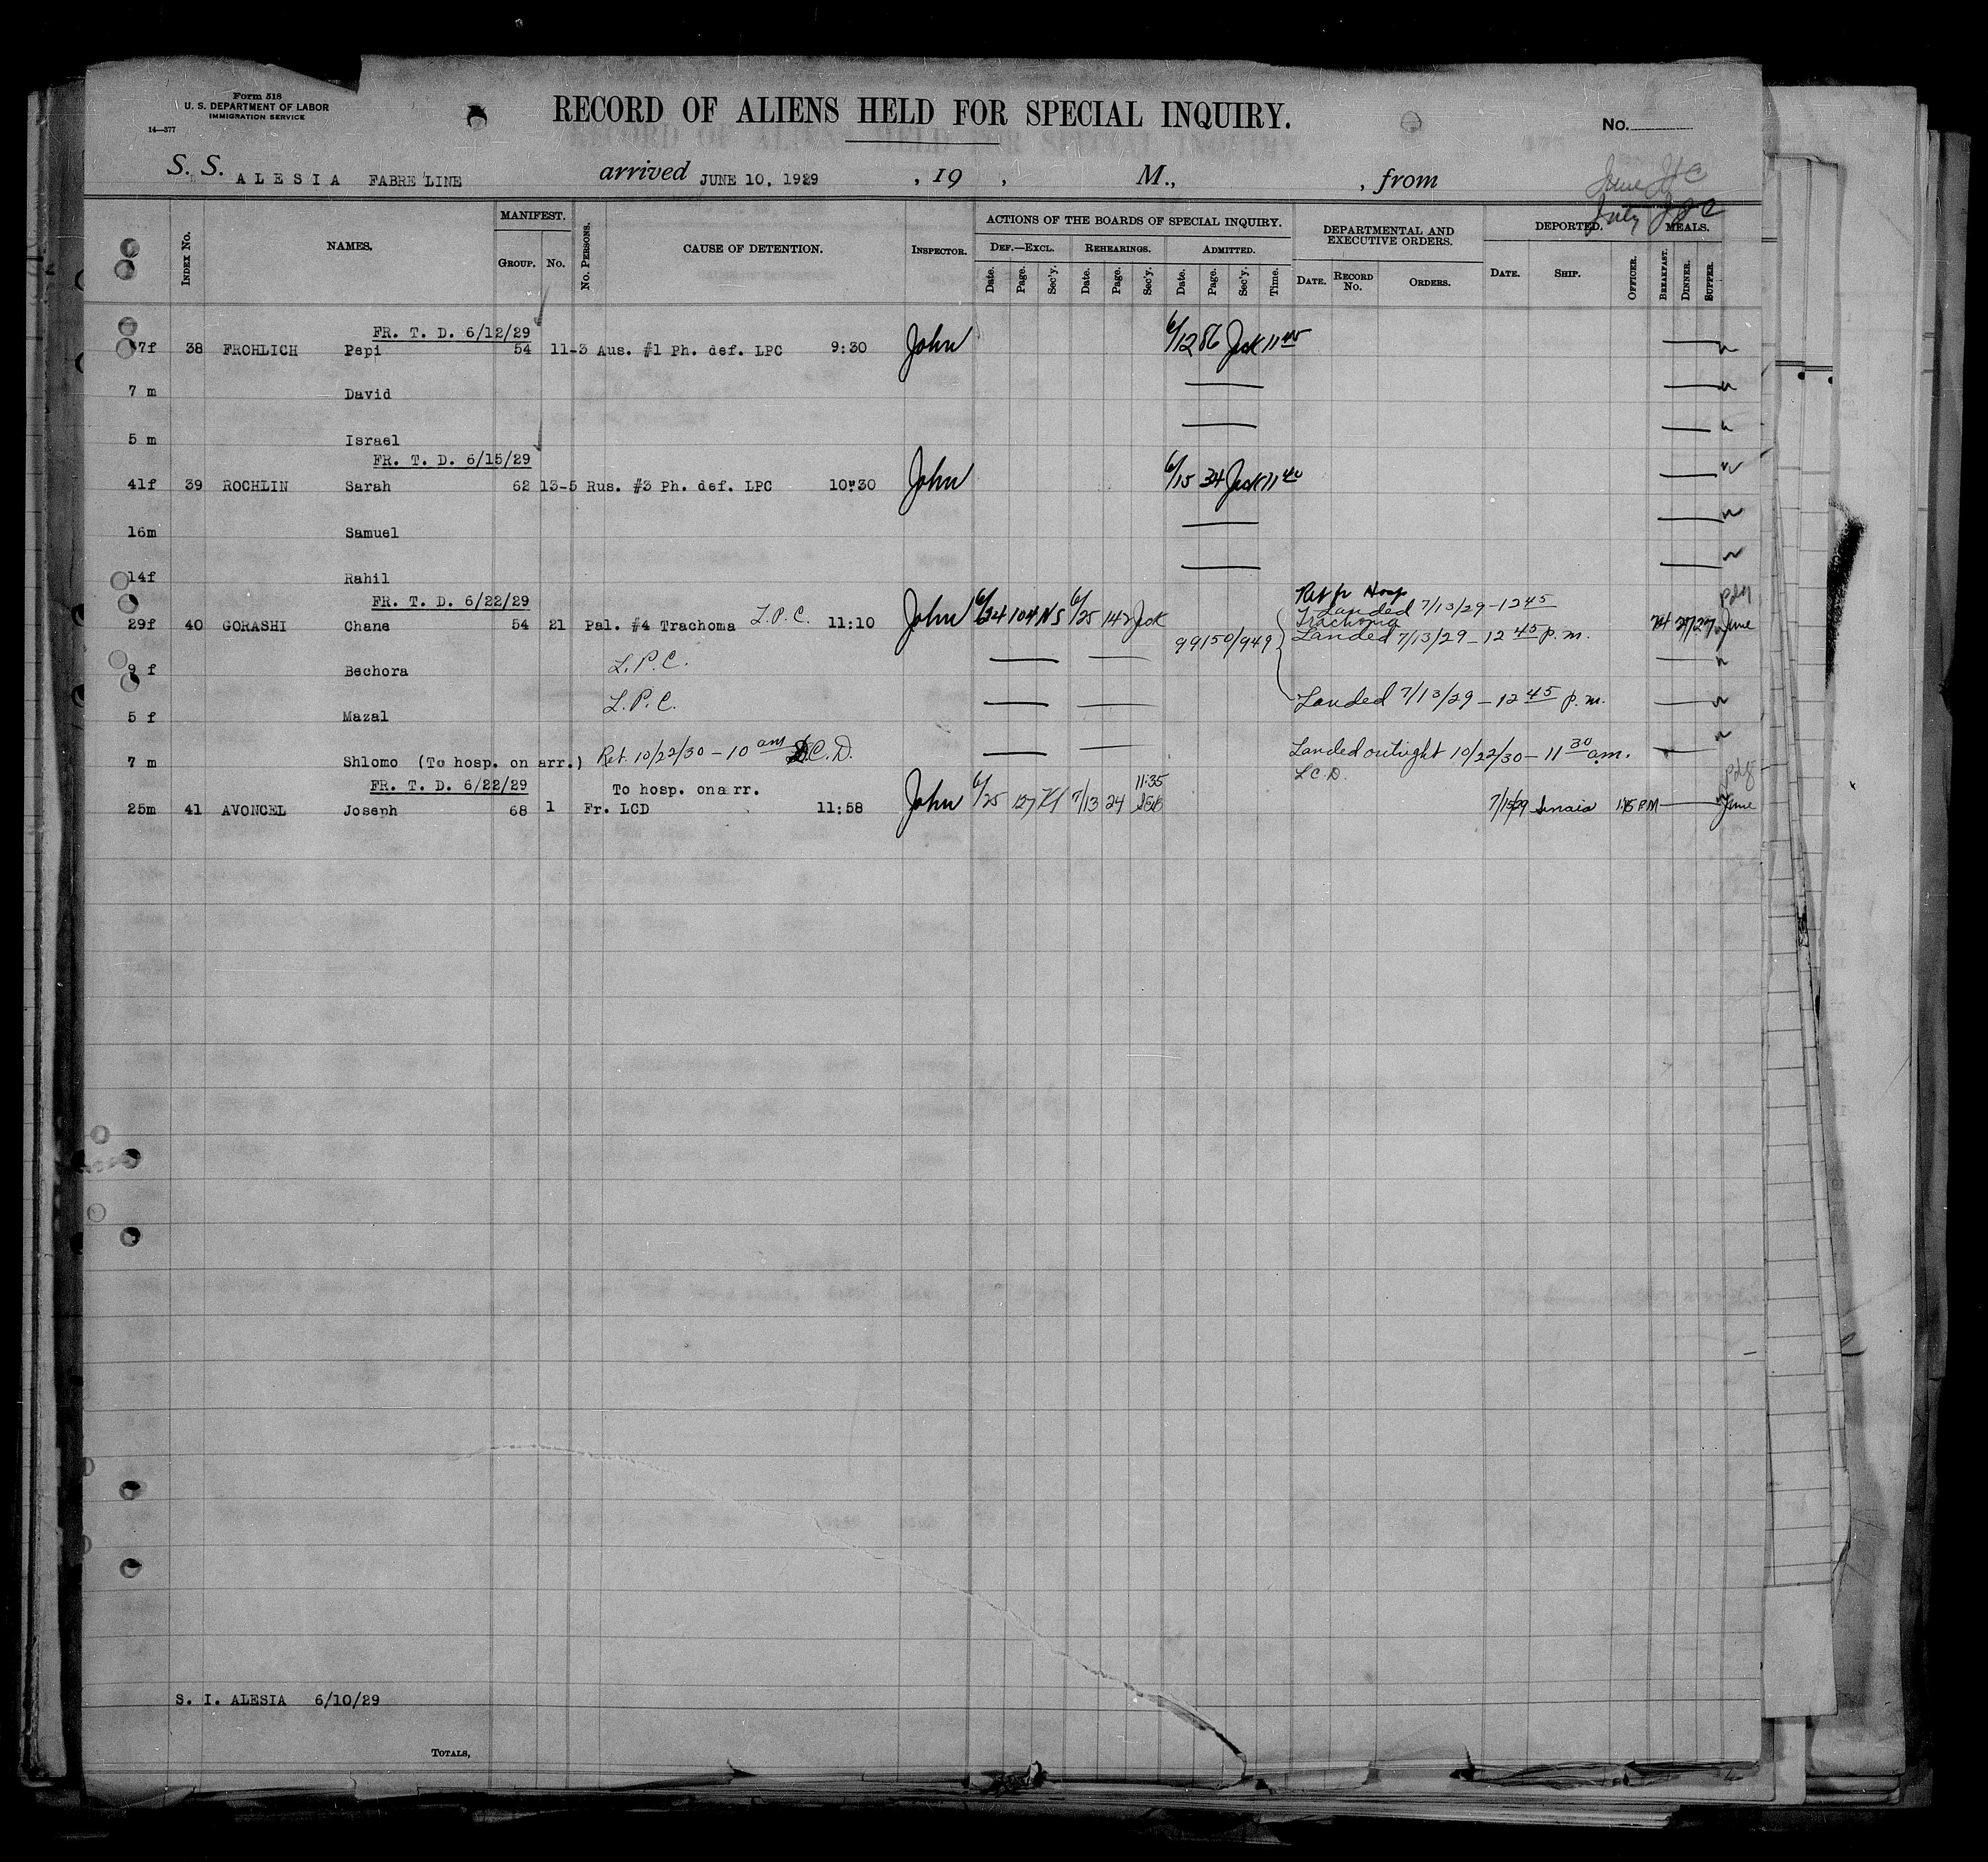 Form 518
U. S. DEPARTMENT OF LABOR
IMMIGRATION SERVICE
14—377
RECORD OF ALIENS HELD FOR SPECIAL INQUIRY.
No.
S. S. ALESIA FABRE LINE arrived JUNE 10, 1929 , 19 , M., , from
June
July
INDEX No. NAMES. MANIFEST. GROUP. No. No. PERSONS. CAUSE OF DETENTION. INSPECTOR. ACTIONS OF THE BOARDS OF SPECIAL INQUIRY. DEPARTMENTAL AND EXECUTIVE ORDERS. DEPORTED. MEALS.
DEF.—EXCL. REHEARINGS. ADMITTED.
Date. Page. Sec'y. Date. Page. Sec'y. Date. Page. Sec'y. Time. DATE. RECORD No. ORDERS. DATE. SHIP. OFFICER. BREAKFAST. DINNER. SUPPER.
FR. T. D. 6/12/29
7f 38 FROHLICH Pepi 54 11-3 Aus. #1 Ph. def. LPC 9:30 John 6/12 86 Jack 11
7 m David
5 m Israel
FR. T. D. 6/15/29
41f 39 ROCHLIN Sarah 62 13-5 Rus. #3 Ph. def. LPC 10:30 John 6/15 34 Jack 11 40
16m Samuel
14f Rahil
FR. T. D. 6/22/29 Hosp
Landed 7/13/29 - 12 45
Trachoma
29f 40 GORASHI Chane 54 21 Pal. #4 Trachoma L.P.C. 11:10 John 6/24 104 NS 6/25 142 Jack 99150/949 Landed 7/13/29 - 12 45 p.m. June
9 f Bechora L.P.C.
5 f Mazal L.P.C. Landed 7/13/29 - 12 45 p.m.
7 m Shlomo (To hosp. on arr.) Ret. 10/22/30 - 10 am L.C.D. Landed outright 10/22/30 - 11 30 a.m.
L C D.
FR. T. D. 6/22/29 To hosp. on arr. 11:35
25m 41 AVONCEL Joseph 68 1 Fr. LCD 11:58 John 6/25 127 7/13 24 7/15/29 Sinaia P M June
S. I. ALESIA 6/10/29
TOTALS,